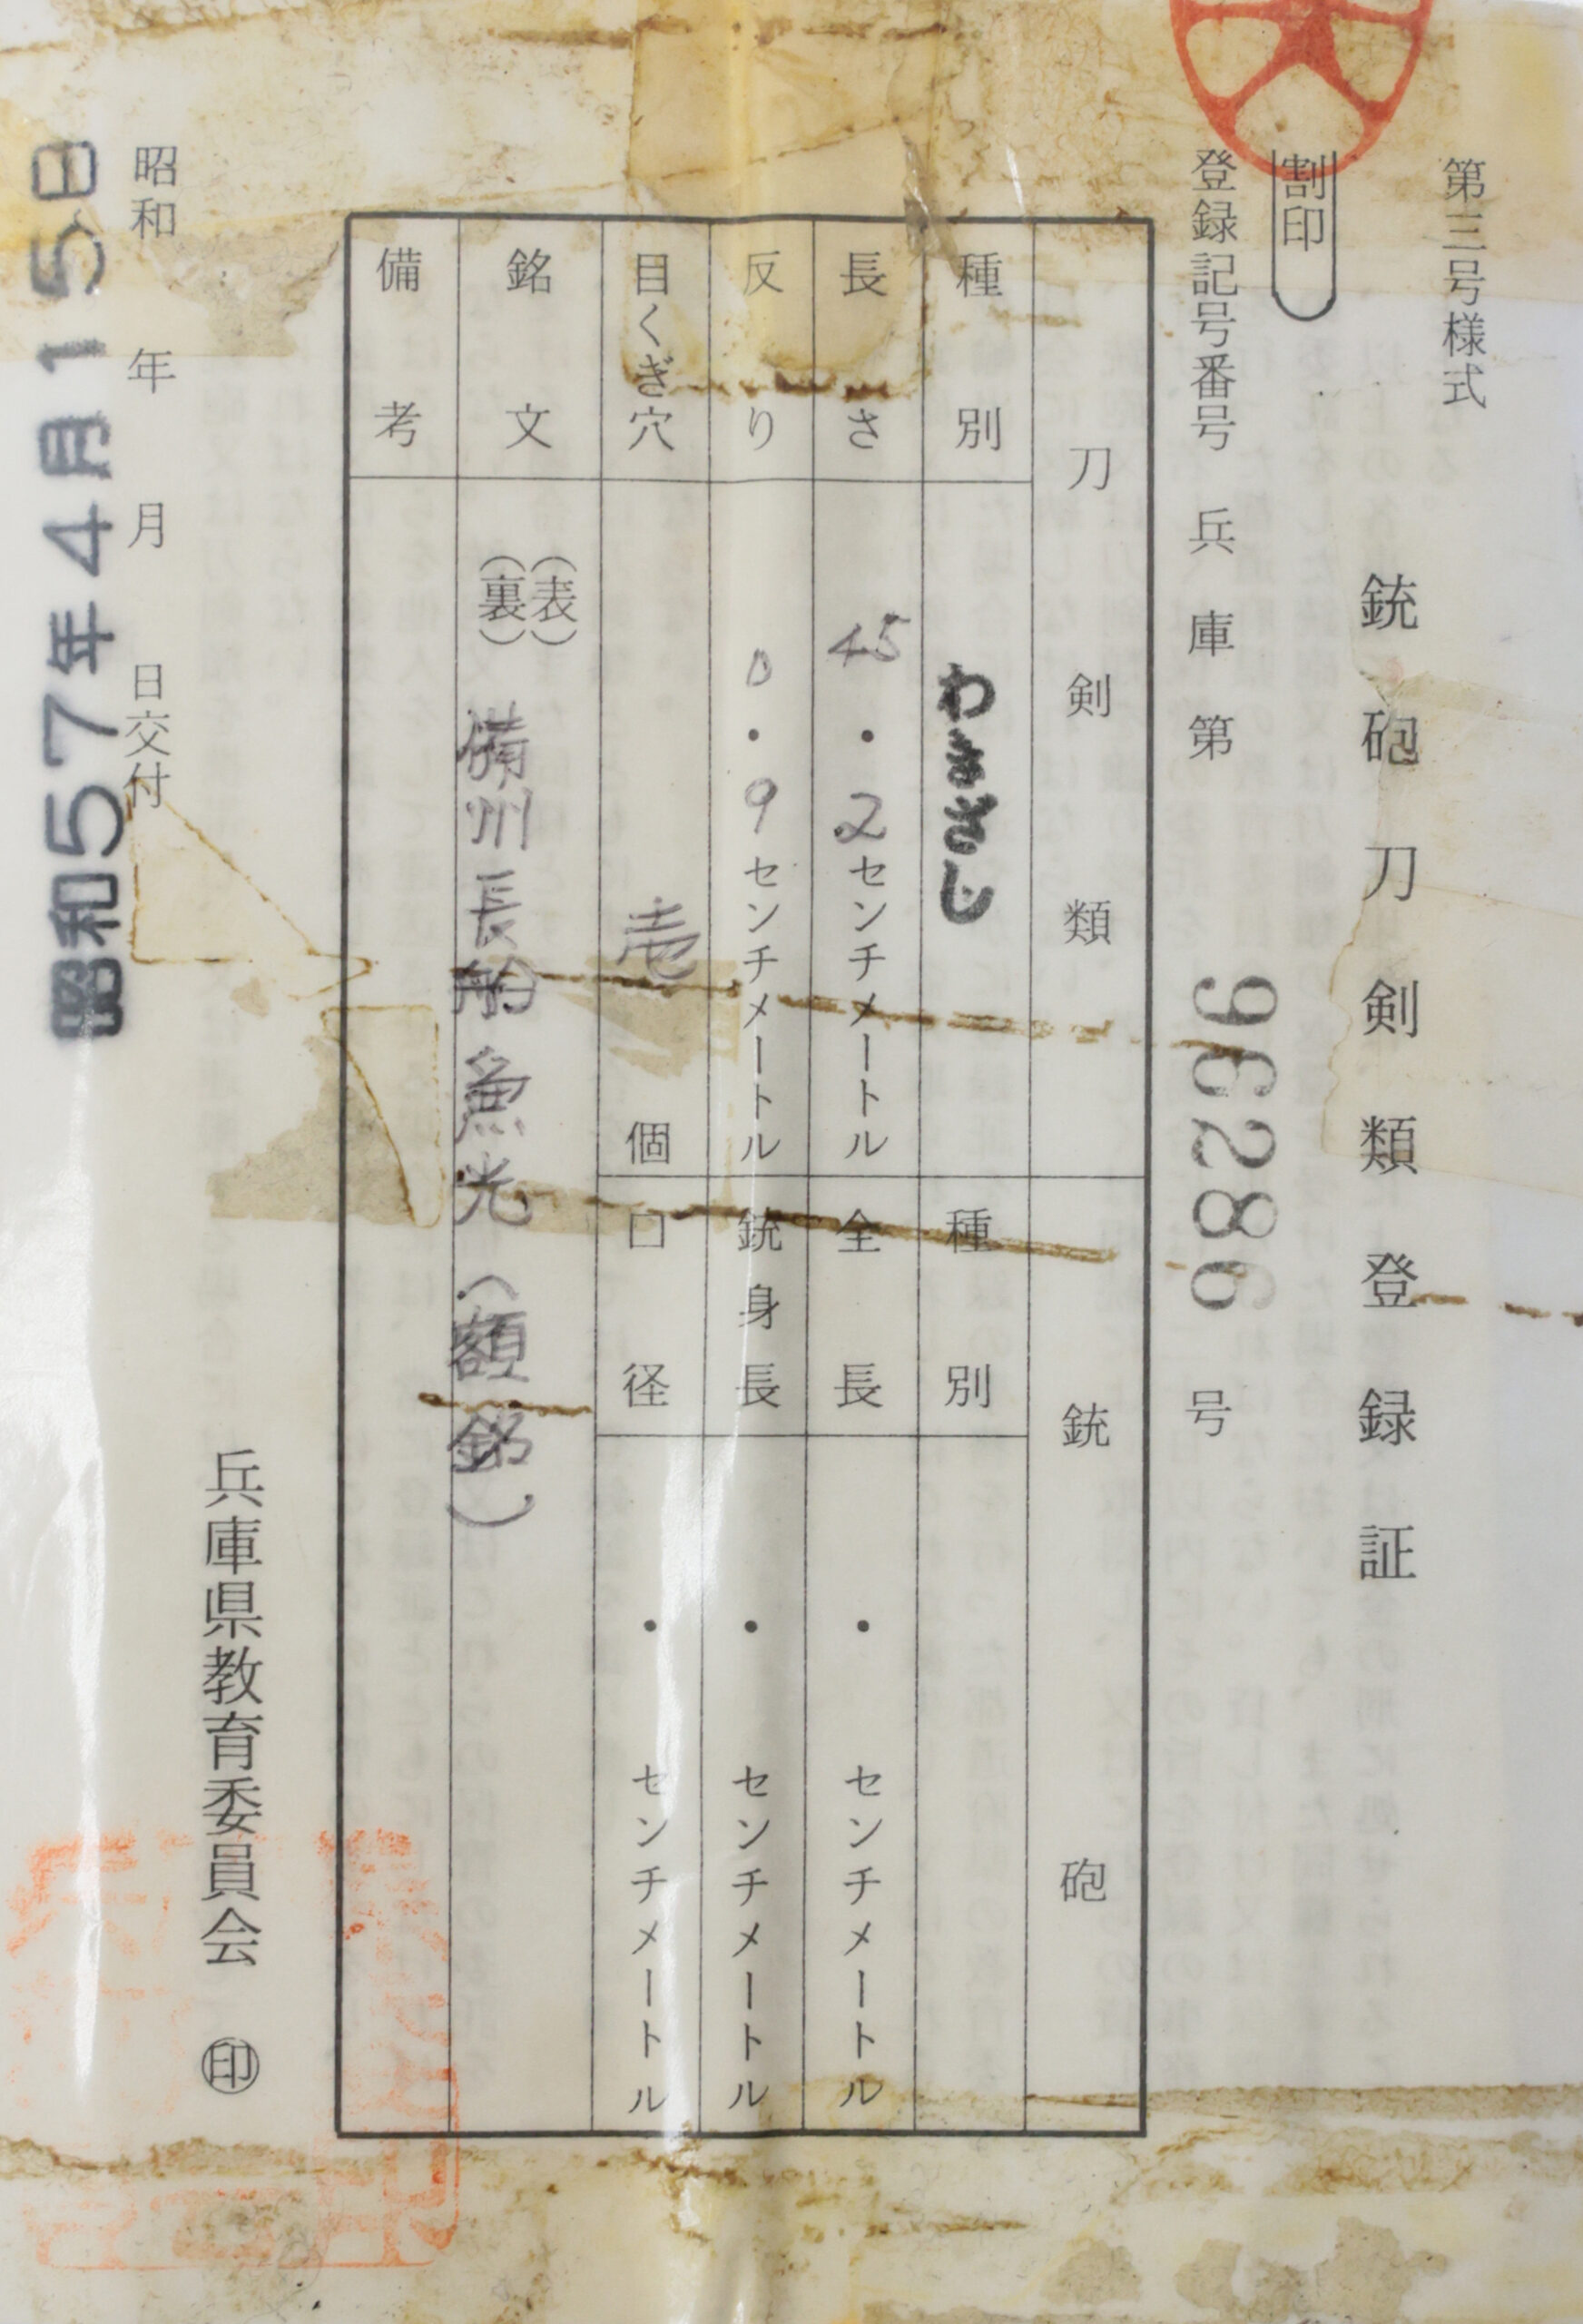 第三号様式
銃砲刀剣類登録証
割印
登録記号番号 兵庫第 号
刀剣類
種別 わきざし
長さ 45・2センチメートル
反り 0・9センチメートル
目くぎ穴 壱個
銘文 (表)
(裏) 備州長船兼光(額銘)
備考
銃砲
種別
全長 ・ センチメートル
銃身長 ・ センチメートル
口径 ・ センチメートル
昭和 年 月 日交付
昭和57年4月15日
兵庫県教育委員会 ㊞